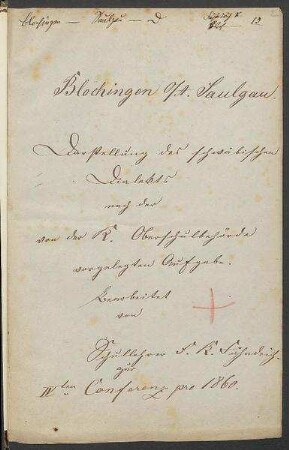 Blochingen – Saulgau – D
12
Blochingen O/A. Saulgau.
Darstellung des schwäbischen
Dialekts
nach der
von der K. Oberschulbehörde
vorgelegten Aufgabe.
Bearbeitet
von
Schullehrer F. K.
zur
IVten Conferenz pro 1860.